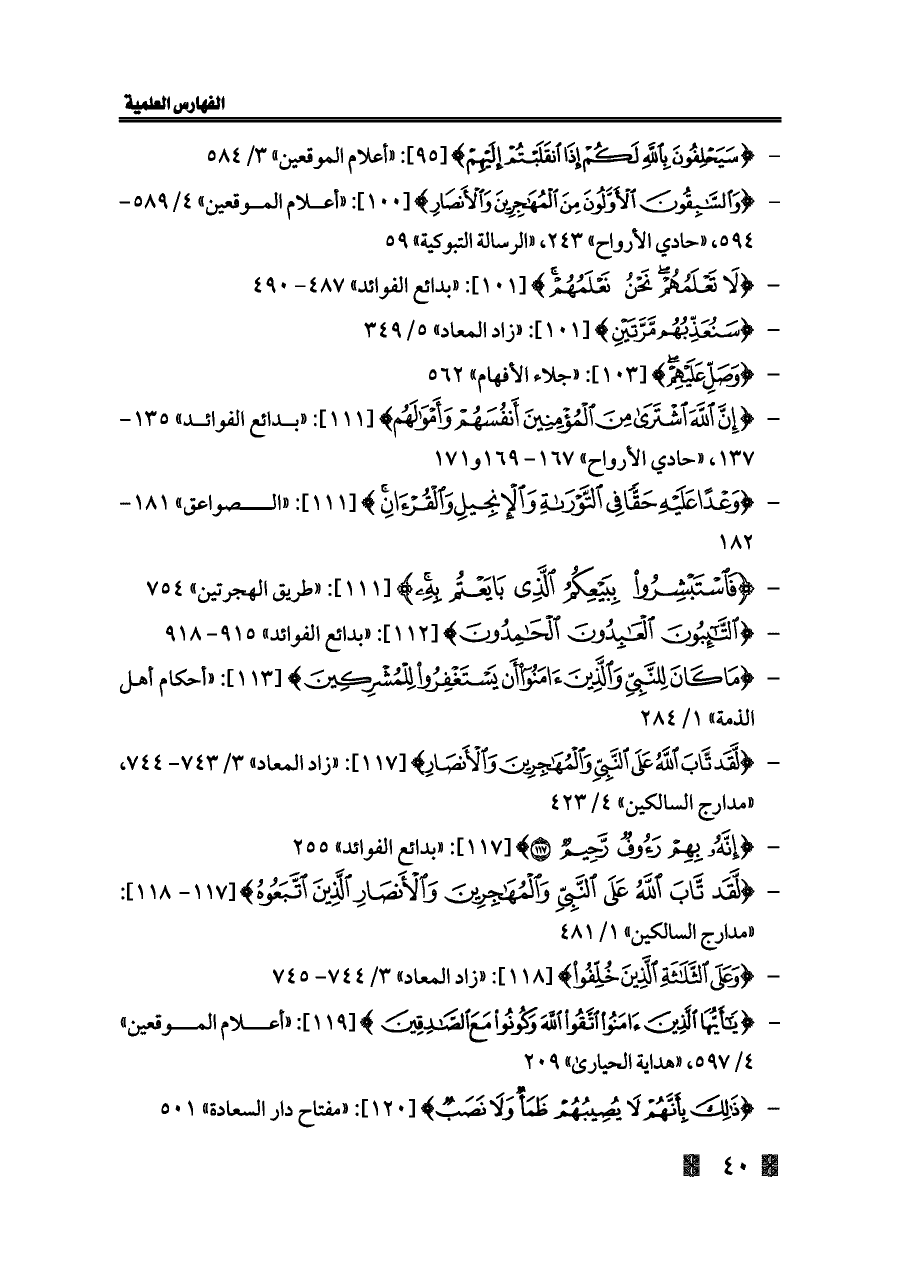 الفهارس العلمية
- ﴿سَيَحْلِفُونَ بِاللَّهِ لَكُمْ إِذَا انقَلَبْتُمْ إِلَيْهِمْ﴾ [٩٥]: «أعلام الموقعين» ٣/ ٥٨٤
- ﴿وَالسَّابِقُونَ الْأَوَّلُونَ مِنَ الْمُهَاجِرِينَ وَالْأَنصَارِ﴾ [١٠٠]: «أعلام الموقعين» ٤/ ٥٨٩-
٥٩٤، «حادي الأرواح» ٢٤٣، «الرسالة التبوكية» ٥٩
- ﴿لَا تَعْلَمُهُمْ ۖ نَحْنُ نَعْلَمُهُمْ ۚ﴾ [١٠١]: «بدائع الفوائد» ٤٨٧- ٤٩٠
- ﴿سَنُعَذِّبُهُم مَّرَّتَيْنِ﴾ [١٠١]: «زاد المعاد» ٥/ ٣٤٩
- ﴿وَصَلِّ عَلَيْهِمْ ۖ﴾ [١٠٣]: «جلاء الأفهام» ٥٦٢
- ﴿إِنَّ اللَّهَ اشْتَرَىٰ مِنَ الْمُؤْمِنِينَ أَنفُسَهُمْ وَأَمْوَالَهُم﴾ [١١١]: «بدائع الفوائد» ١٣٥-
١٣٧، «حادي الأرواح» ١٦٧- ١٦٩و١٧١
- ﴿وَعْدًا عَلَيْهِ حَقًّا فِي التَّوْرَاةِ وَالْإِنجِيلِ وَالْقُرْءَانِ ۚ﴾ [١١١]: «الصواعق» ١٨١-
١٨٢
- ﴿فَاسْتَبْشِرُوا بِبَيْعِكُمُ الَّذِي بَايَعْتُم بِهِ ۚ﴾ [١١١]: «طريق الهجرتين» ٧٥٤
- ﴿التَّائِبُونَ الْعَابِدُونَ الْحَامِدُونَ﴾ [١١٢]: «بدائع الفوائد» ٩١٥- ٩١٨
- ﴿مَا كَانَ لِلنَّبِيِّ وَالَّذِينَ ءَامَنُوا أَن يَسْتَغْفِرُوا لِلْمُشْرِكِينَ﴾ [١١٣]: «أحكام أهل
الذمة» ١/ ٢٨٤
- ﴿لَّقَد تَّابَ اللَّهُ عَلَى النَّبِيِّ وَالْمُهَاجِرِينَ وَالْأَنصَارِ﴾ [١١٧]: «زاد المعاد» ٣/ ٧٤٣- ٧٤٤،
«مدارج السالكين» ٤/ ٤٢٣
- ﴿إِنَّهُ بِهِمْ رَءُوفٌ رَّحِيمٌ ١١٧﴾ [١١٧]: «بدائع الفوائد» ٢٥٥
- ﴿لَّقَد تَّابَ اللَّهُ عَلَى النَّبِيِّ وَالْمُهَاجِرِينَ وَالْأَنصَارِ الَّذِينَ اتَّبَعُوهُ﴾ [١١٧- ١١٨]:
«مدارج السالكين» ١/ ٤٨١
- ﴿وَعَلَى الثَّلَاثَةِ الَّذِينَ خُلِّفُوا﴾ [١١٨]: «زاد المعاد» ٣/ ٧٤٤- ٧٤٥
- ﴿يَا أَيُّهَا الَّذِينَ ءَامَنُوا اتَّقُوا اللَّهَ وَكُونُوا مَعَ الصَّادِقِينَ﴾ [١١٩]: «أعلام الموقعين»
٤/ ٥٩٧، «هداية الحيارىٰ» ٢٠٩
- ﴿ذَٰلِكَ بِأَنَّهُمْ لَا يُصِيبُهُمْ ظَمَأٌ وَلَا نَصَبٌ﴾ [١٢٠]: «مفتاح دار السعادة» ٥٠١
٤٠